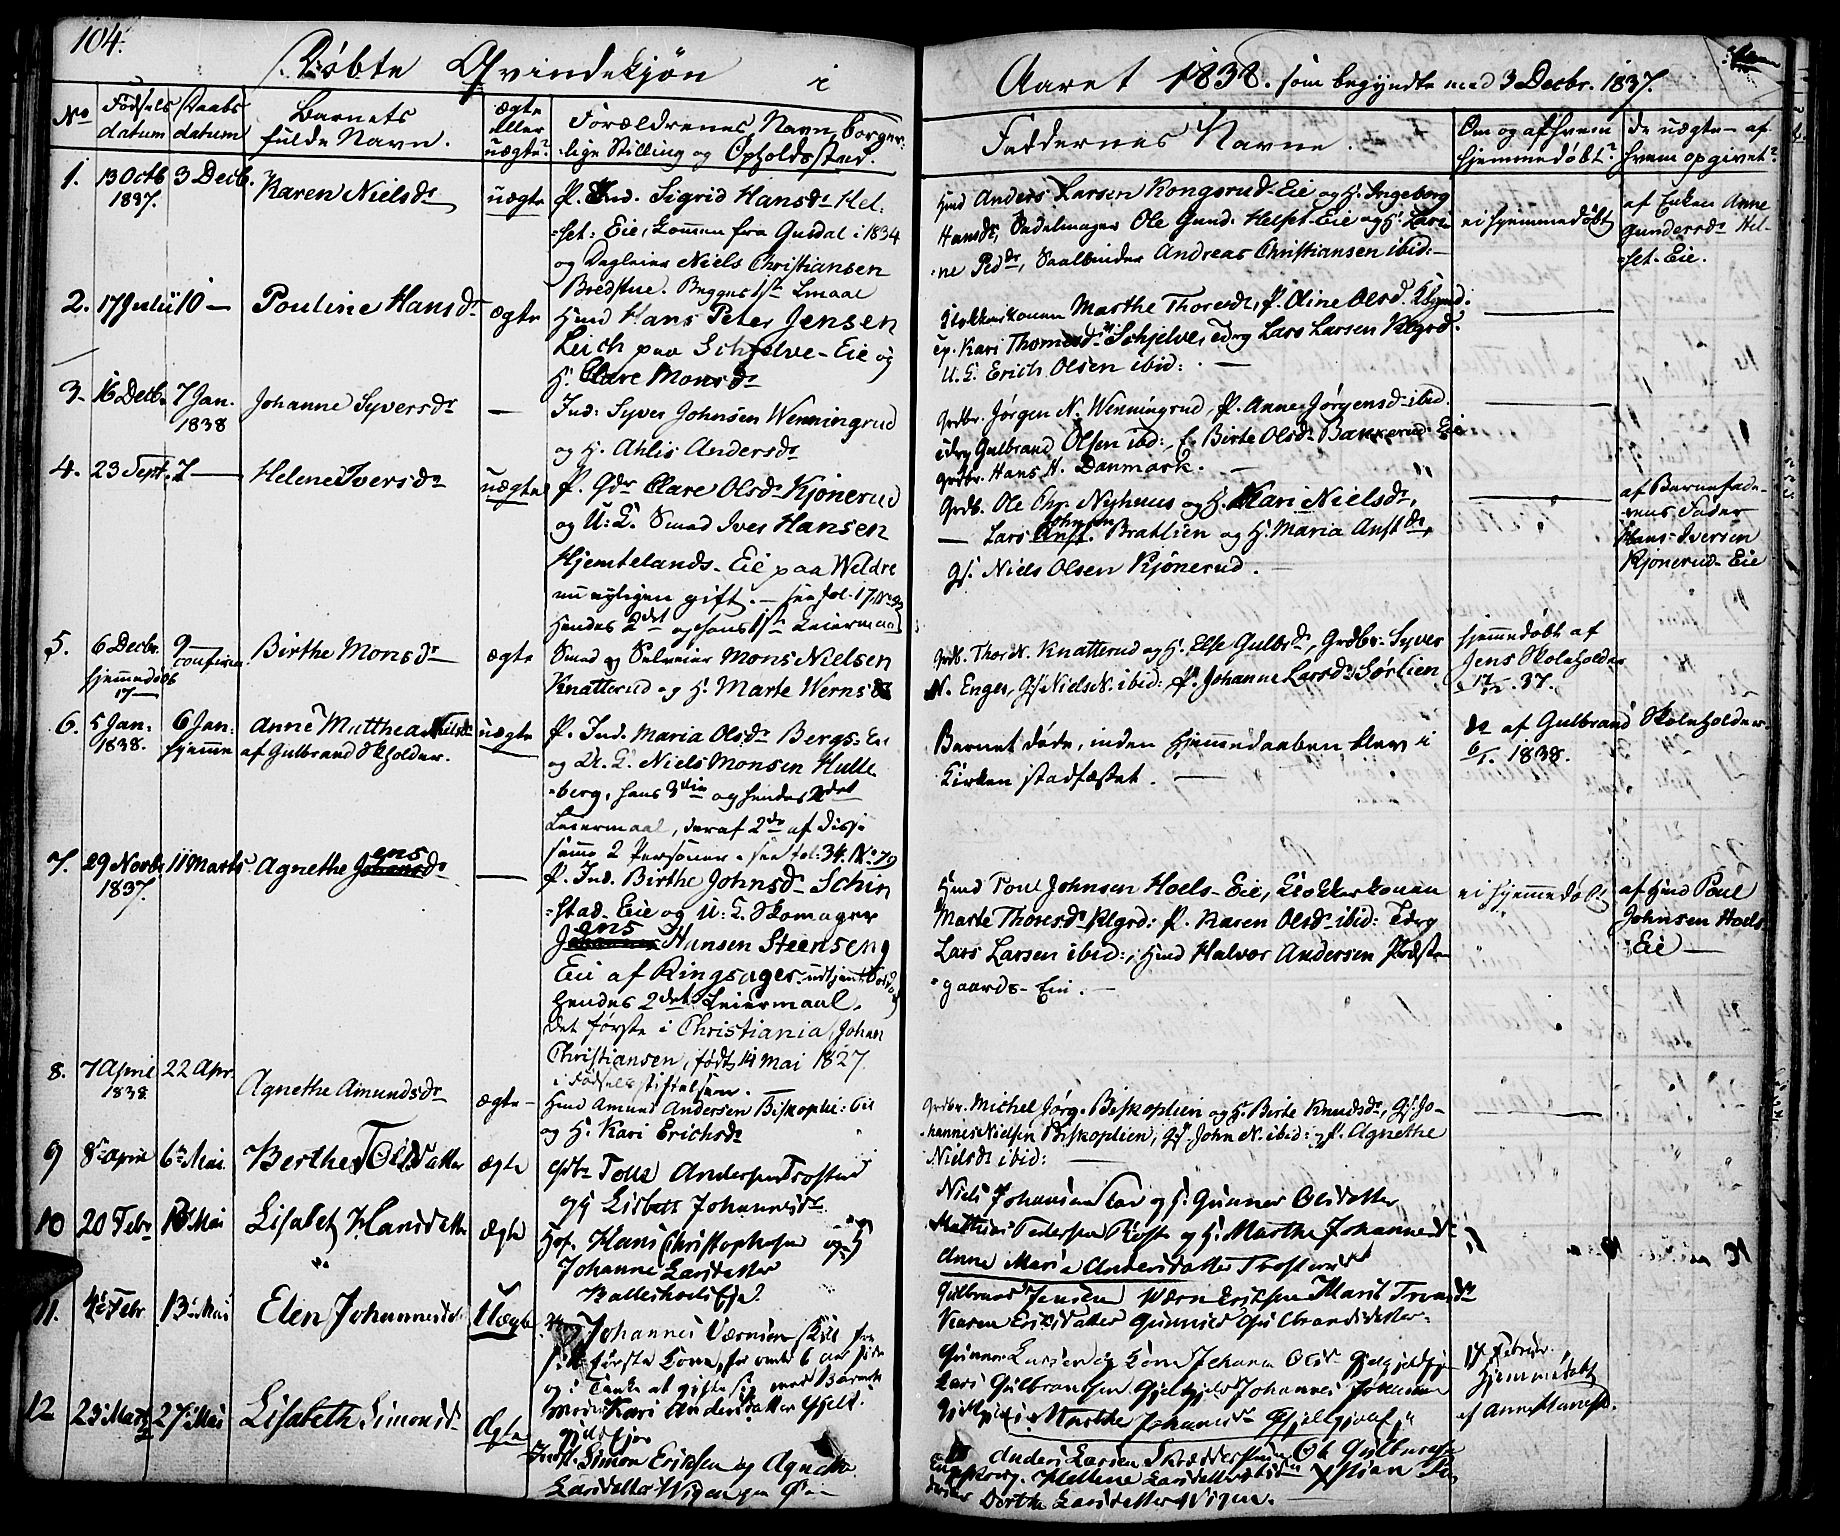 104.
Døbte Qvindekjøn i Aaret 1838. som begyndte med 3 Decbr. 1837.
No
Fødsels datum
Daabs datum
Barnets fulde Navn.
ægte eller uægte?
Forældrenes Navn, borger-
lige Stilling og Opholdssted.
Faddernes Navne.
Om og af hvem hjemmedøbt?
de uægte - af hvem opgivet?
1. 13 Octb 1837. 3 Decb. Karen Nielsdr uægte
P. Ind. Sigrid Hansdr Hel-
set-Eie, kommen fra Gusdal i 1834
og Dagleier Niels Christiansen
Bredstue. Begges 1ste Lmaal
Hmd Anders Larsen Kongsrud-Eie og H. Ingeborg
Hansdr, Sadelmager Ole Gund. Helset-Eie og H. Lare-
ne Peddr, Skolbinder Andreas Christiansen ibid:
ei hjemmedøbt
af Enken Anne
Gundersdr Hel-
set-Eie.
2. 17 Julii 10 — Pouline Hansdr ægte
Hmd Hans Peter Jensen
Leich paa Schjelve-Eie og
H. Clare Monsdr
Klokkerkonen Marthe Thoresdr, P. Oline Olsd. Klgrd.
ep. Kari Thomesdr Schjelve, Tdrg Lars Larsen Klgrd.
U. K. Erich Olsen ibid:
3. 16 Decb. 7 Jan. 1838 Johanne Syversdr —
Ind: Syver Johnsen Wenningrud
og H. Ahlis Andersdr
Grdbr. Jørgen N. Wenningrud, P. Anne Jørgensd. ibid.
Tdrg Gulbrand Olsen ibid:, E. Birte Olsdr Bakkerud-Eie
Grdbr. Hans N. Danmark.
4. 23 Sept. 7 — Helene Iversdr uægte
P. Gdr Clare Olsdr Kjønerud
og U: K. Smed Iver Hansen
Hjemtelands-Eie paa Weldre
nu nyligen gift. — see fol. 17. No 92
Hendes 2det og hans 1ste Leiermaal
Grdb. Ole Chr. Nyhuus og H. Kari Nielsdr,
— Lars Johnsen Bratlien og H. Maria Anstdr,
Gs. Niels Olsen Kjønerud.
af Barnefade-
rens Fader
Hans Iversen
Kjønerud-Eie
5. 6 Decbr. hjemmedøb 17 — 9 confirm. Birthe Monsdr ægte
Smed og Selveier Mons Nielsen
Knatterud og H. Marte Wernsdr
Grdb. Thor N. Knatterud og H. Else Gulbrdr, Grdbr. Syver
N. Enger, Gs. Niels N. ibid: P. Johanne Larsdr Sørlien
hjemmedøbt af
Jens Skoleholder
17/12 37.
6. 5 Jan. 1838. 6 Jan. hjemme Anne Matthea Nielsdr
af Gulbrand Skholder. uægte
P. Ind. Maria Olsdr Bergs-Eie
og U. K. Niels Monsen Hulle-
berg, hans 3die og hendes 2det
Leiermaal, deraf 2de af disse
samme 2 Personer - see fol. 34. No 79
Barnet døde, inden Hjemmedaaben blev i
Kirken stadfæstet.
do af Gulbrand Skoleholder.
6/1. 1838.
7. 29 Novbr 1837. 11 Marts Agnethe Jensdr —
P. Ind. Birthe Johnsdr Schin-
stad-Eie og U: K. Skomager
Jens Hansen Steenseng
Eie af Ringsager. udtjent Soldat
Hendes 2det Leiermaal.
det første i Christiania, Johan
Christiansen, født 14 Mai 1827
i Fødselsstiftelsen.
Hmd Poul Johnsen Hoels-Eie, Klokkerkonen
Marte Thoresdr Klgrd: P. Karen Olsdr ibid: Tdrg
Lars Larsen ibid:, Hmd Halvor Andersen Præste-
gaards-Eie.
ei hjemmedøbt
af Hmd Poul
Johnsen Hoels-
Eie —
8. 7 April 1838 22 Apr. Agnethe Amundsdr ægte
Hmd Amund Andersen Biskoplie-Eie
og H. Kari Erichsdr
Grdbr. Michel Jørg. Biskoplien og H. Birte Knudsdr, Gs. Jo-
hannes Nielsen Biskoplien, Gs. John N. ibid: P. Agnethe
Nielsdr ibid:
9 8de April 6te Mai Berthe Tolsdatter ægte
Gdbr Tolls Andersen Trosterud
og H. Lisbeth Johannesdr
Niels Johansen Kar og H. Gunner Olsdatter
Mathias Pedersen Roste og H. Marthe Johannesdr
Anne Maria Andersdatter Trosterud
10 20 Febr 13 Mai Lisabet Hansdatter ægte
Hof. Hans Christophersen og H
Johanne Larsdatter
Ballishoels Eie
Gulbrand Jensen Wærn Eriksen Marit Tronsdr
Karen Eriksdatter Gunnild Gulbrandsdatter
11. 4de Febr 13de Mai Elen Johannesdr Uægte
Johannes Værnsen
første Kone, for omtr 6 aar siden
og i Tanke at gifte sig med Barnets
moder Kari Andersdatter
Gunner Larsen og Kone Johana Olsdr
Lars Gulbrandsen Johannes
Marthe Johannesdr
17 Februar
Hjemmedøbt
af Anne Hansdr.
12 23 Marts 27de Mai Lisabeth Simonsdr Ægte
Indst. Simon Eriksen og Agnethe
Larsdatter Wigen
Anders Larsen Ole Gulbrandsen
Hellene Larsdatter
Dorthe Larsdatter Wigen.